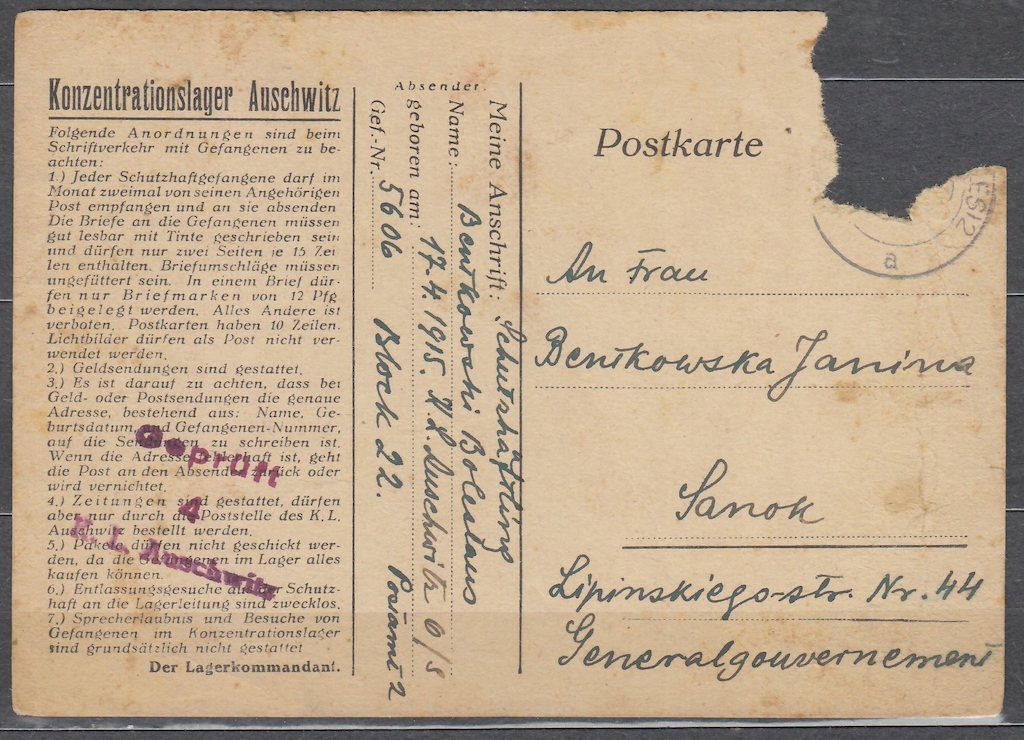 Konzentrationslager Auschwitz
Folgende Anordnungen sind beim
Schriftverkehr mit Gefangenen zu be-
achten:
1.) Jeder Schutzhaftgefangene darf im
Monat zweimal von seinen Angehörigen
Post empfangen und an sie absenden
Die Briefe an die Gefangenen müssen
gut lesbar mit Tinte geschrieben sein
und dürfen nur zwei Seiten je 15 Zei
len enthalten. Briefumschläge müssen
ungefüttert sein. In einem Brief dür-
fen nur Briefmarken von 12 Pfg
beigelegt werden. Alles Andere ist
verboten. Postkarten haben 10 Zeilen.
Lichtbilder dürfen als Post nicht ver-
wendet werden.
2.) Geldsendungen sind gestattet.
3.) Es ist darauf zu achten, dass bei
Geld- oder Postsendungen die genaue
Adresse, bestehend aus: Name, Ge-
burtsdatum, und Gefangenen-Nummer,
auf die Sendungen zu schreiben ist.
Wenn die Adresse fehlerhaft ist, geht
die Post an den Absender zurück oder
wird vernichtet.
4.) Zeitungen sind gestattet, dürfen
aber nur durch die Poststelle des K. L.
Auschwitz bestellt werden.
5.) Pakete dürfen nicht geschickt wer-
den, da die Gefangenen im Lager alles
kaufen können.
6.) Entlassungsgesuche aus der Schutz-
haft an die Lagerleitung sind zwecklos.
7.) Sprecherlaubnis und Besuche von
Gefangenen im Konzentrationslager
sind grundsätzlich nicht gestattet
Der Lagerkommandant.
Geprüft
4
K. L. Auschwitz
Absender.
Meine Anschrift: Schutzhäftling
Name: Bentkowski Boleslaus
geboren am: 17.4.1915. K.L. Auschwitz O/S
Gef.-Nr. 5606 Block 22. Postamt 2
Postkarte
a
An Frau
Bentkowska Janina
Sanok
Lipinskiego-str. Nr. 44
Generalgouvernement